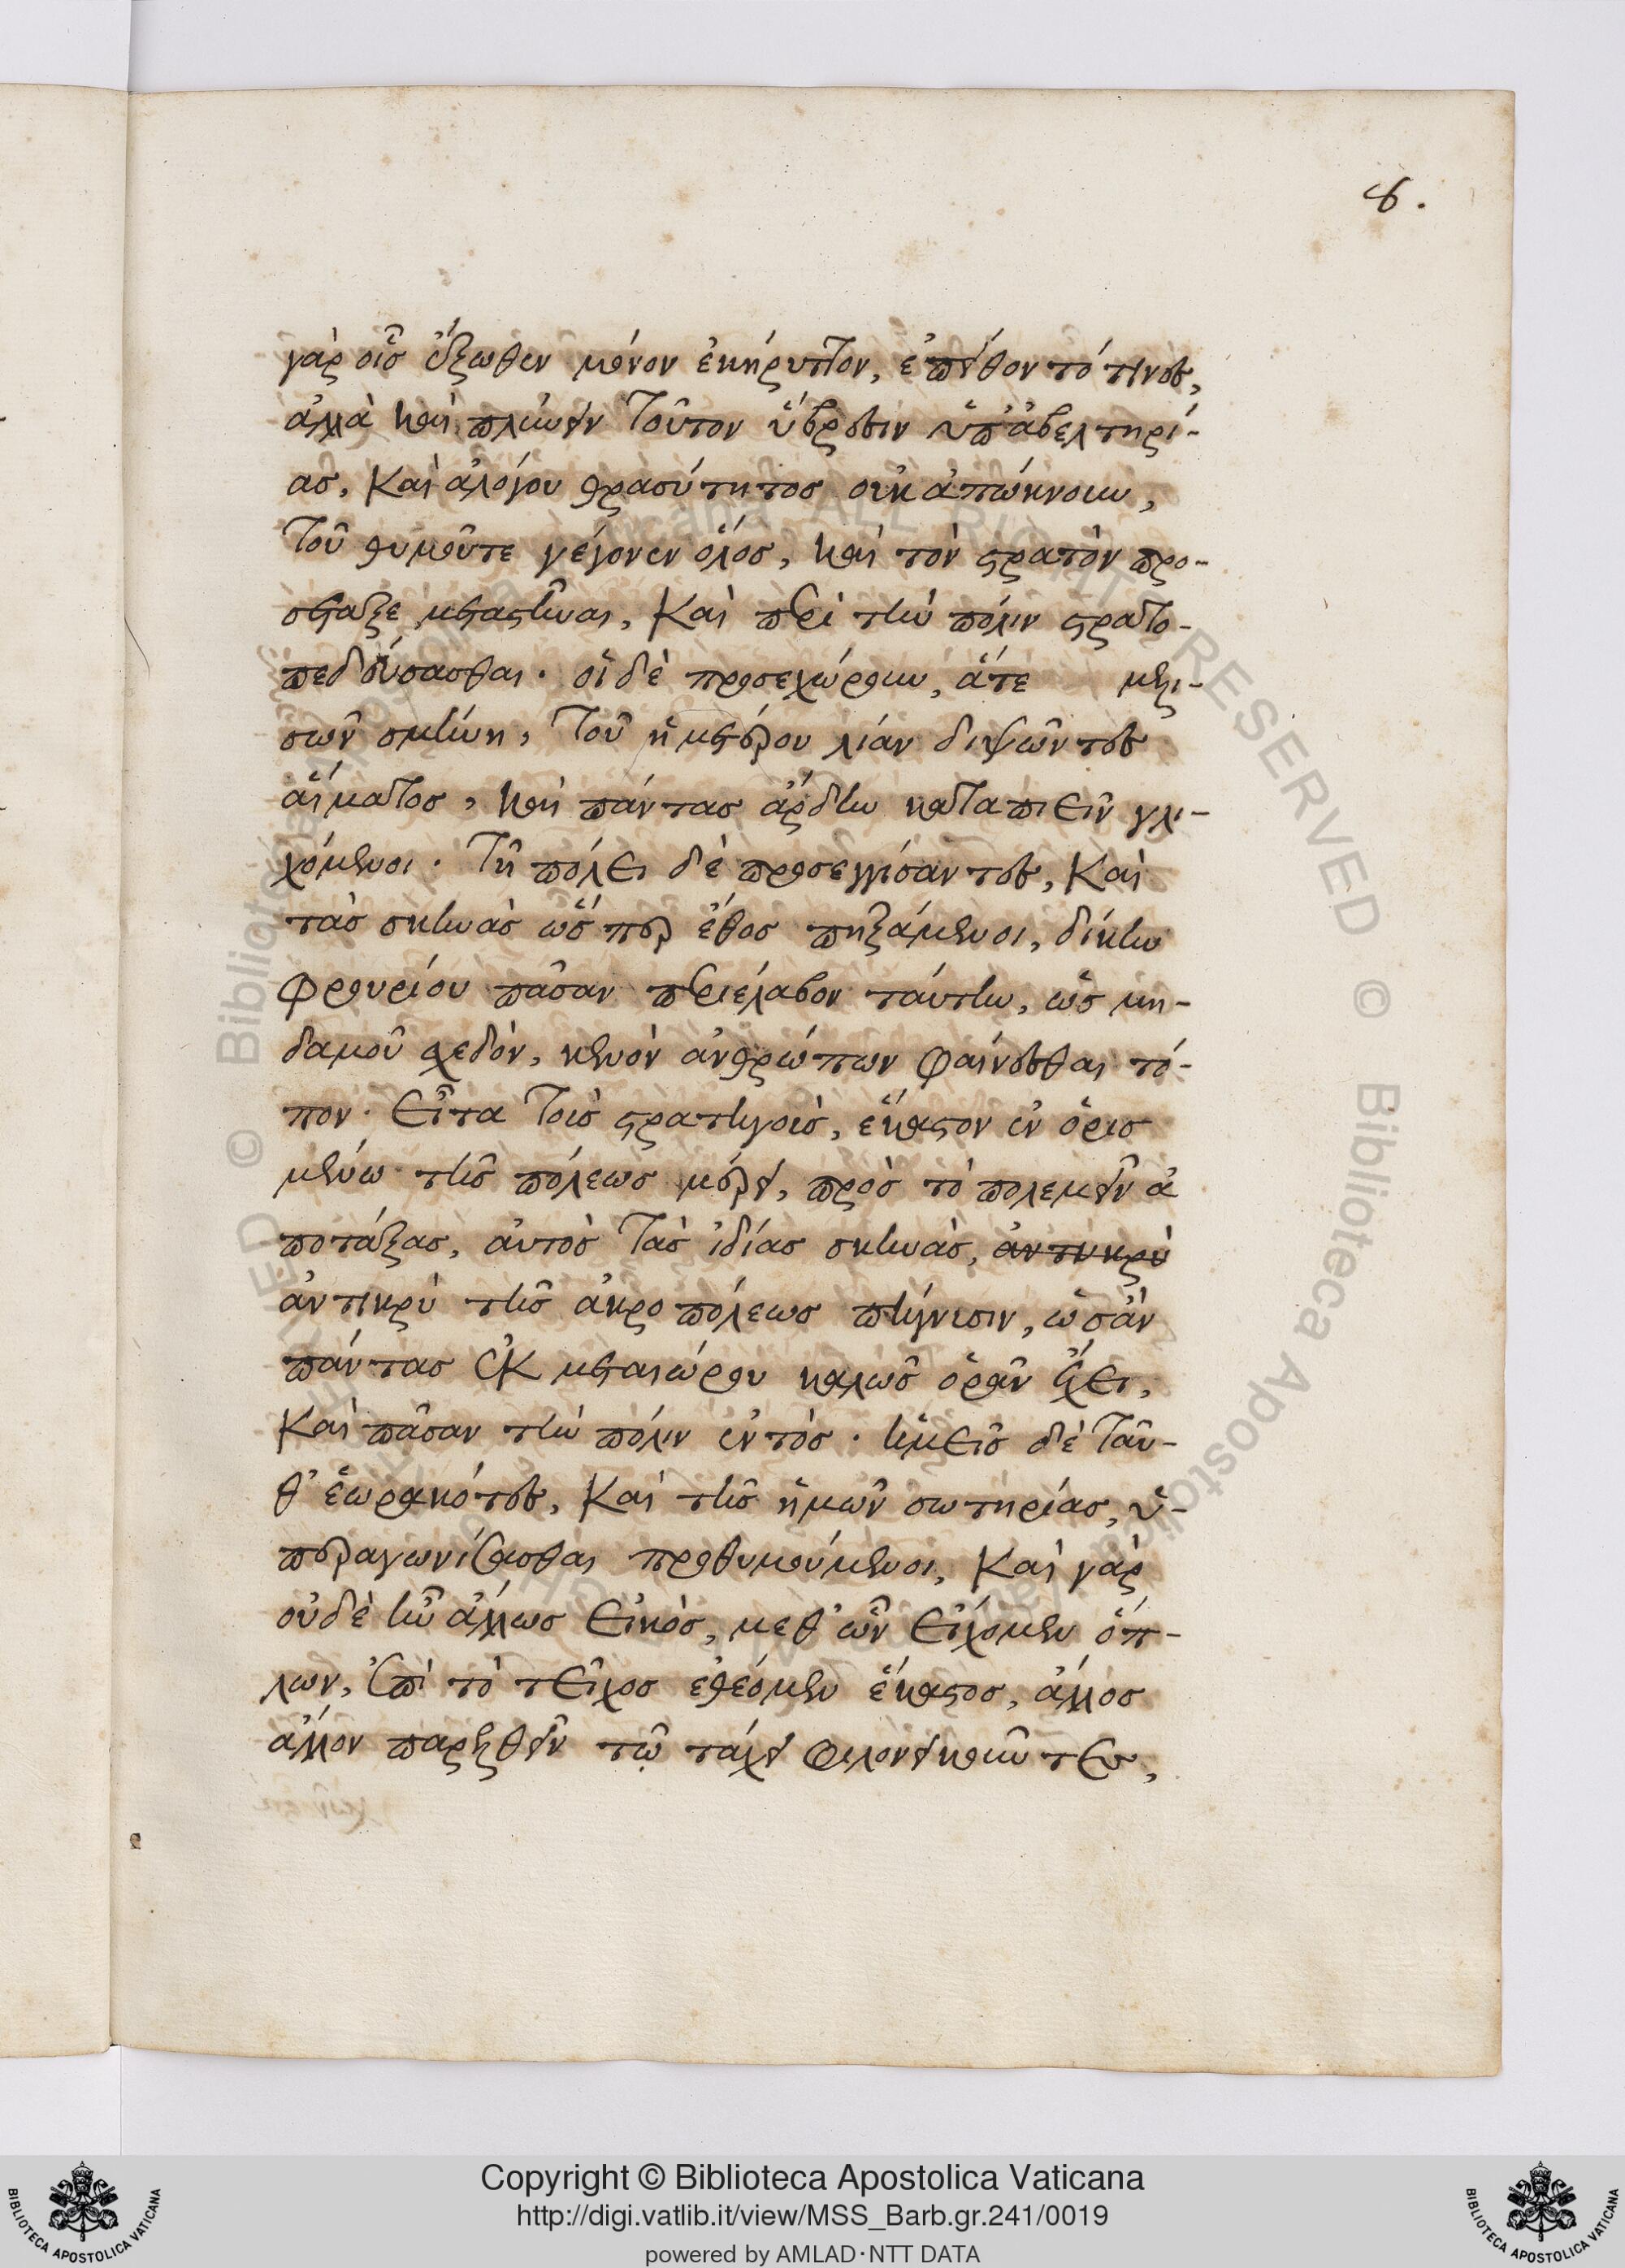 8.
γὰρ οἷς ἔξωθεν μόνον ἐκήρυττον, ἐπείθοντό τινες,
ἀλλὰ καὶ πλύνειν τοῦτον ὕβρεσιν ὑπ' ἀβελτηρί-
ας, καὶ ἀλόγου θρασύτητος οὐκ ἀπώκνουν,
τοῦ θυμοῦτε γέγονεν ὅλος, καὶ τὸν στρατὸν προ-
σέταξε μεταστῆναι, καὶ περὶ τὴν πόλιν στρατο-
πεδεύσασθαι. οἱ δὲ προσεχώρουν, ἅτε μελι-
σσῶν σμήνη, τοῦ ἡμετέρου λίαν διψῶντες
αἵματος, καὶ πάντας ἄρδην καταπιεῖν γλι-
χόμενοι. τῇ πόλει δὲ προσεγγίσαντες, καὶ
τὰς σκηνὰς ὥσπερ ἔθος πηξάμενοι, δίκην
φρουρίου πᾶσαν περιέλαβον ταύτην, ὡς μη-
δαμοῦ σχεδὸν, κενὸν ἀνθρώπων φαίνεσθαι τό-
πον. εἶτα τοῖς στρατηγοῖς, ἕκαστον ἐν ὁρισ
μένω τῆς πόλεως μέρει, πρὸς τὸ πολεμεῖν ἀ
ποτάξας, αὐτὸς τὰς ἰδίας σκηνὰς, ἀντικρὺ
ἀντικρὺ τῆς ἀκροπόλεως πήγνυσιν, ὡσὰν
πάντας ἐκ μεταιώρου καλῶς ὁρᾶν ἔχει,
καὶ πᾶσαν τὴν πόλιν ἐντός. ἡμεῖς δὲ ταῦ-
θ' ἑωρακότες, καὶ τῆς ἡμῶν σωτηρίας, ὑ-
περαγωνίζεσθαι προθυμούμενοι, καὶ γὰρ
οὐδὲ ἦν ἄλλως εἰκὸς, μεθ' ὧν εἴχομεν ὅπ-
λων, ἐπὶ τὸ τεῖχος ἐθέομεν ἕκαστος, ἄλλος
ἄλλον παρελθεῖν τῷ τάχει φιλονεικοῦντες,
Copyright © Biblioteca Apostolica Vaticana
http://digi.vatlib.it/view/MSS_Barb.gr.241/0019
powered by AMLAD·NTT DATA